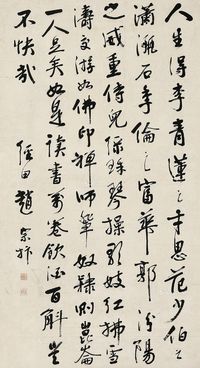 人生得李青蓮之才思范少伯之
瀟灑石季倫之富郭汾陽
之威重侍兒綠珠琴操歌妓紅拂雪
濤交游如佛印禪師輩奴隸則崑崙
一人足矣如是讀書萬卷飲酒百斛豈
不快哉
田趙宗